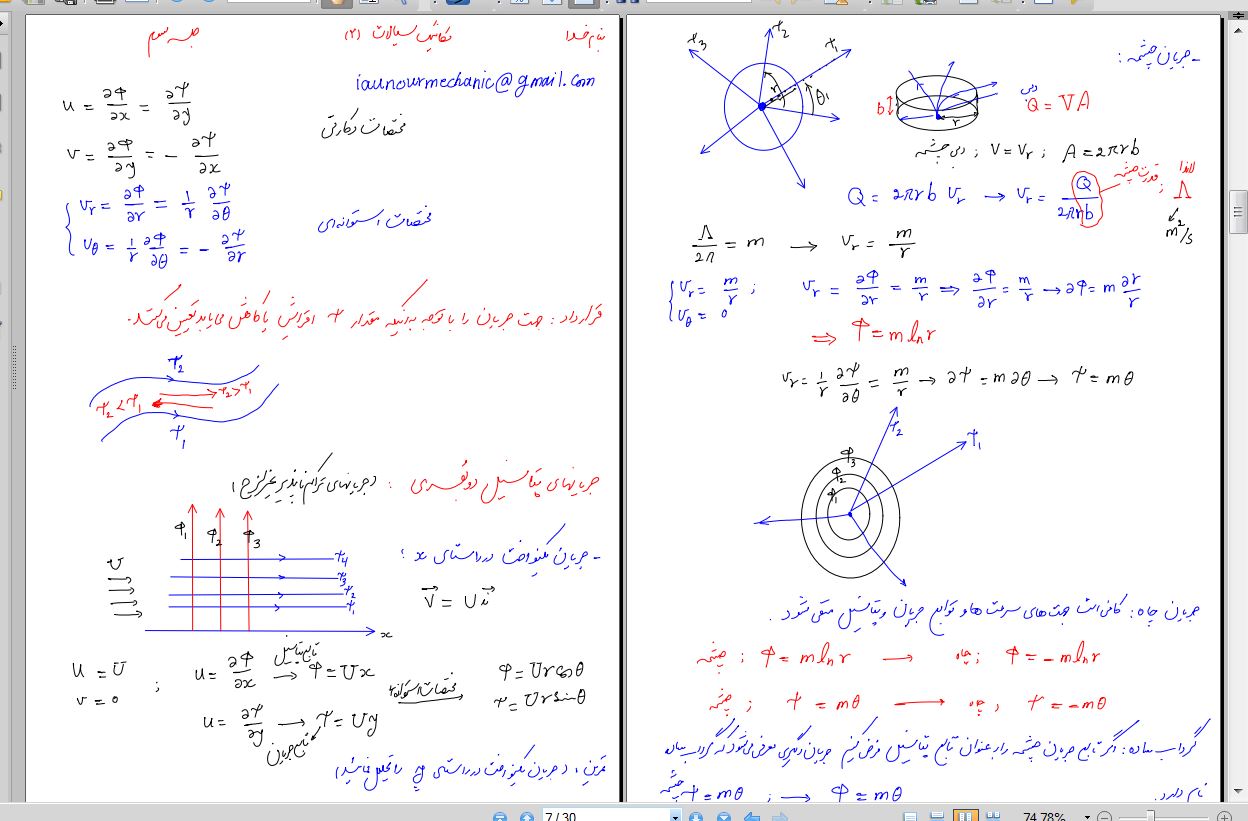 بنام خدا مکانیک سیالات (۲) جلسه سوم
iaunourmechanic@gmail.com
u = ∂Φ/∂x = ∂Ψ/∂y
مختصات دکارتی
v = ∂Φ/∂y = - ∂Ψ/∂x
Vr = ∂Φ/∂r = 1/r ∂Ψ/∂θ
مختصات استوانه‌ای
Vθ = 1/r ∂Φ/∂θ = - ∂Ψ/∂r
قرارداد : جهت جریان را با توجه به اینکه مقدار Ψ افزایش یا کاهش می‌یابد تعیین می‌کنند.
Ψ2
Ψ2 > Ψ1
Ψ2 < Ψ1
Ψ1
جریانهای پتانسیل دو بُعدی : (جریانهای تراکم ناپذیر غیر لزج)
Φ1 Φ2 Φ3
- جریان یکنواخت در راستای x :
U
Ψ4
Ψ3
Ψ2
Ψ1
V = U i
x
تابع پتانسیل
u = U
v = 0 ;
u = ∂Φ/∂x → Φ = Ux
مختصات استوانه‌ای
Φ = Ur cosθ
Ψ = Ur sinθ
u = ∂Ψ/∂y → Ψ = Uy
تابع جریان
تمرین : (جریان یکنواخت در راستای y را تحلیل نمائید)
- جریان چشمه :
Ψ3 Ψ2 Ψ1
r θ1
b r
دبی
Q = VA
دبی چشمه ; V = Vr ; A = 2πrb
Q = 2πrb Vr → Vr = Q/2πrb
قدرت چشمه ; Λ
لاندا
m²/s
Λ/2π = m → Vr = m/r
Vr = m/r ; Vr = ∂Φ/∂r = m/r ⇒ ∂Φ/∂r = m/r → ∂Φ = m ∂r/r
Vθ = 0
⇒ Φ = m ln r
Vr = 1/r ∂Ψ/∂θ = m/r → ∂Ψ = m ∂θ → Ψ = mθ
Ψ2 Ψ1
Φ3
Φ2
Φ1
جریان چاه : کافی است جهت‌های سرعت ها و توابع جریان و پتانسیل منفی شود .
چشمه ; Φ = m ln r → چاه ; Φ = - m ln r
چشمه ; Ψ = mθ → چاه ; Ψ = - mθ
گرداب ساده : اگر تابع جریان چشمه را به عنوان تابع پتانسیل فرض کنیم جریان دیگری معرفی می‌شود که گرداب ساده
نام دارد.
چشمه Ψ = mθ ; → Φ = mθ
7 / 30
74.78%